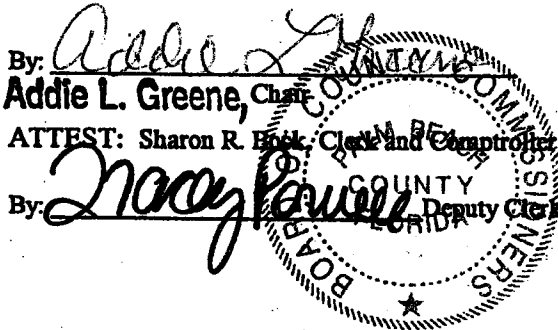 By: Addie L. Greene
Addie L. Greene, Chair
ATTEST: Sharon R. Bock, Clerk and Comptroller
By: Deputy Clerk
BOARD COUNTY COMMISSIONERS
PALM BEACH
COUNTY
FLORIDA